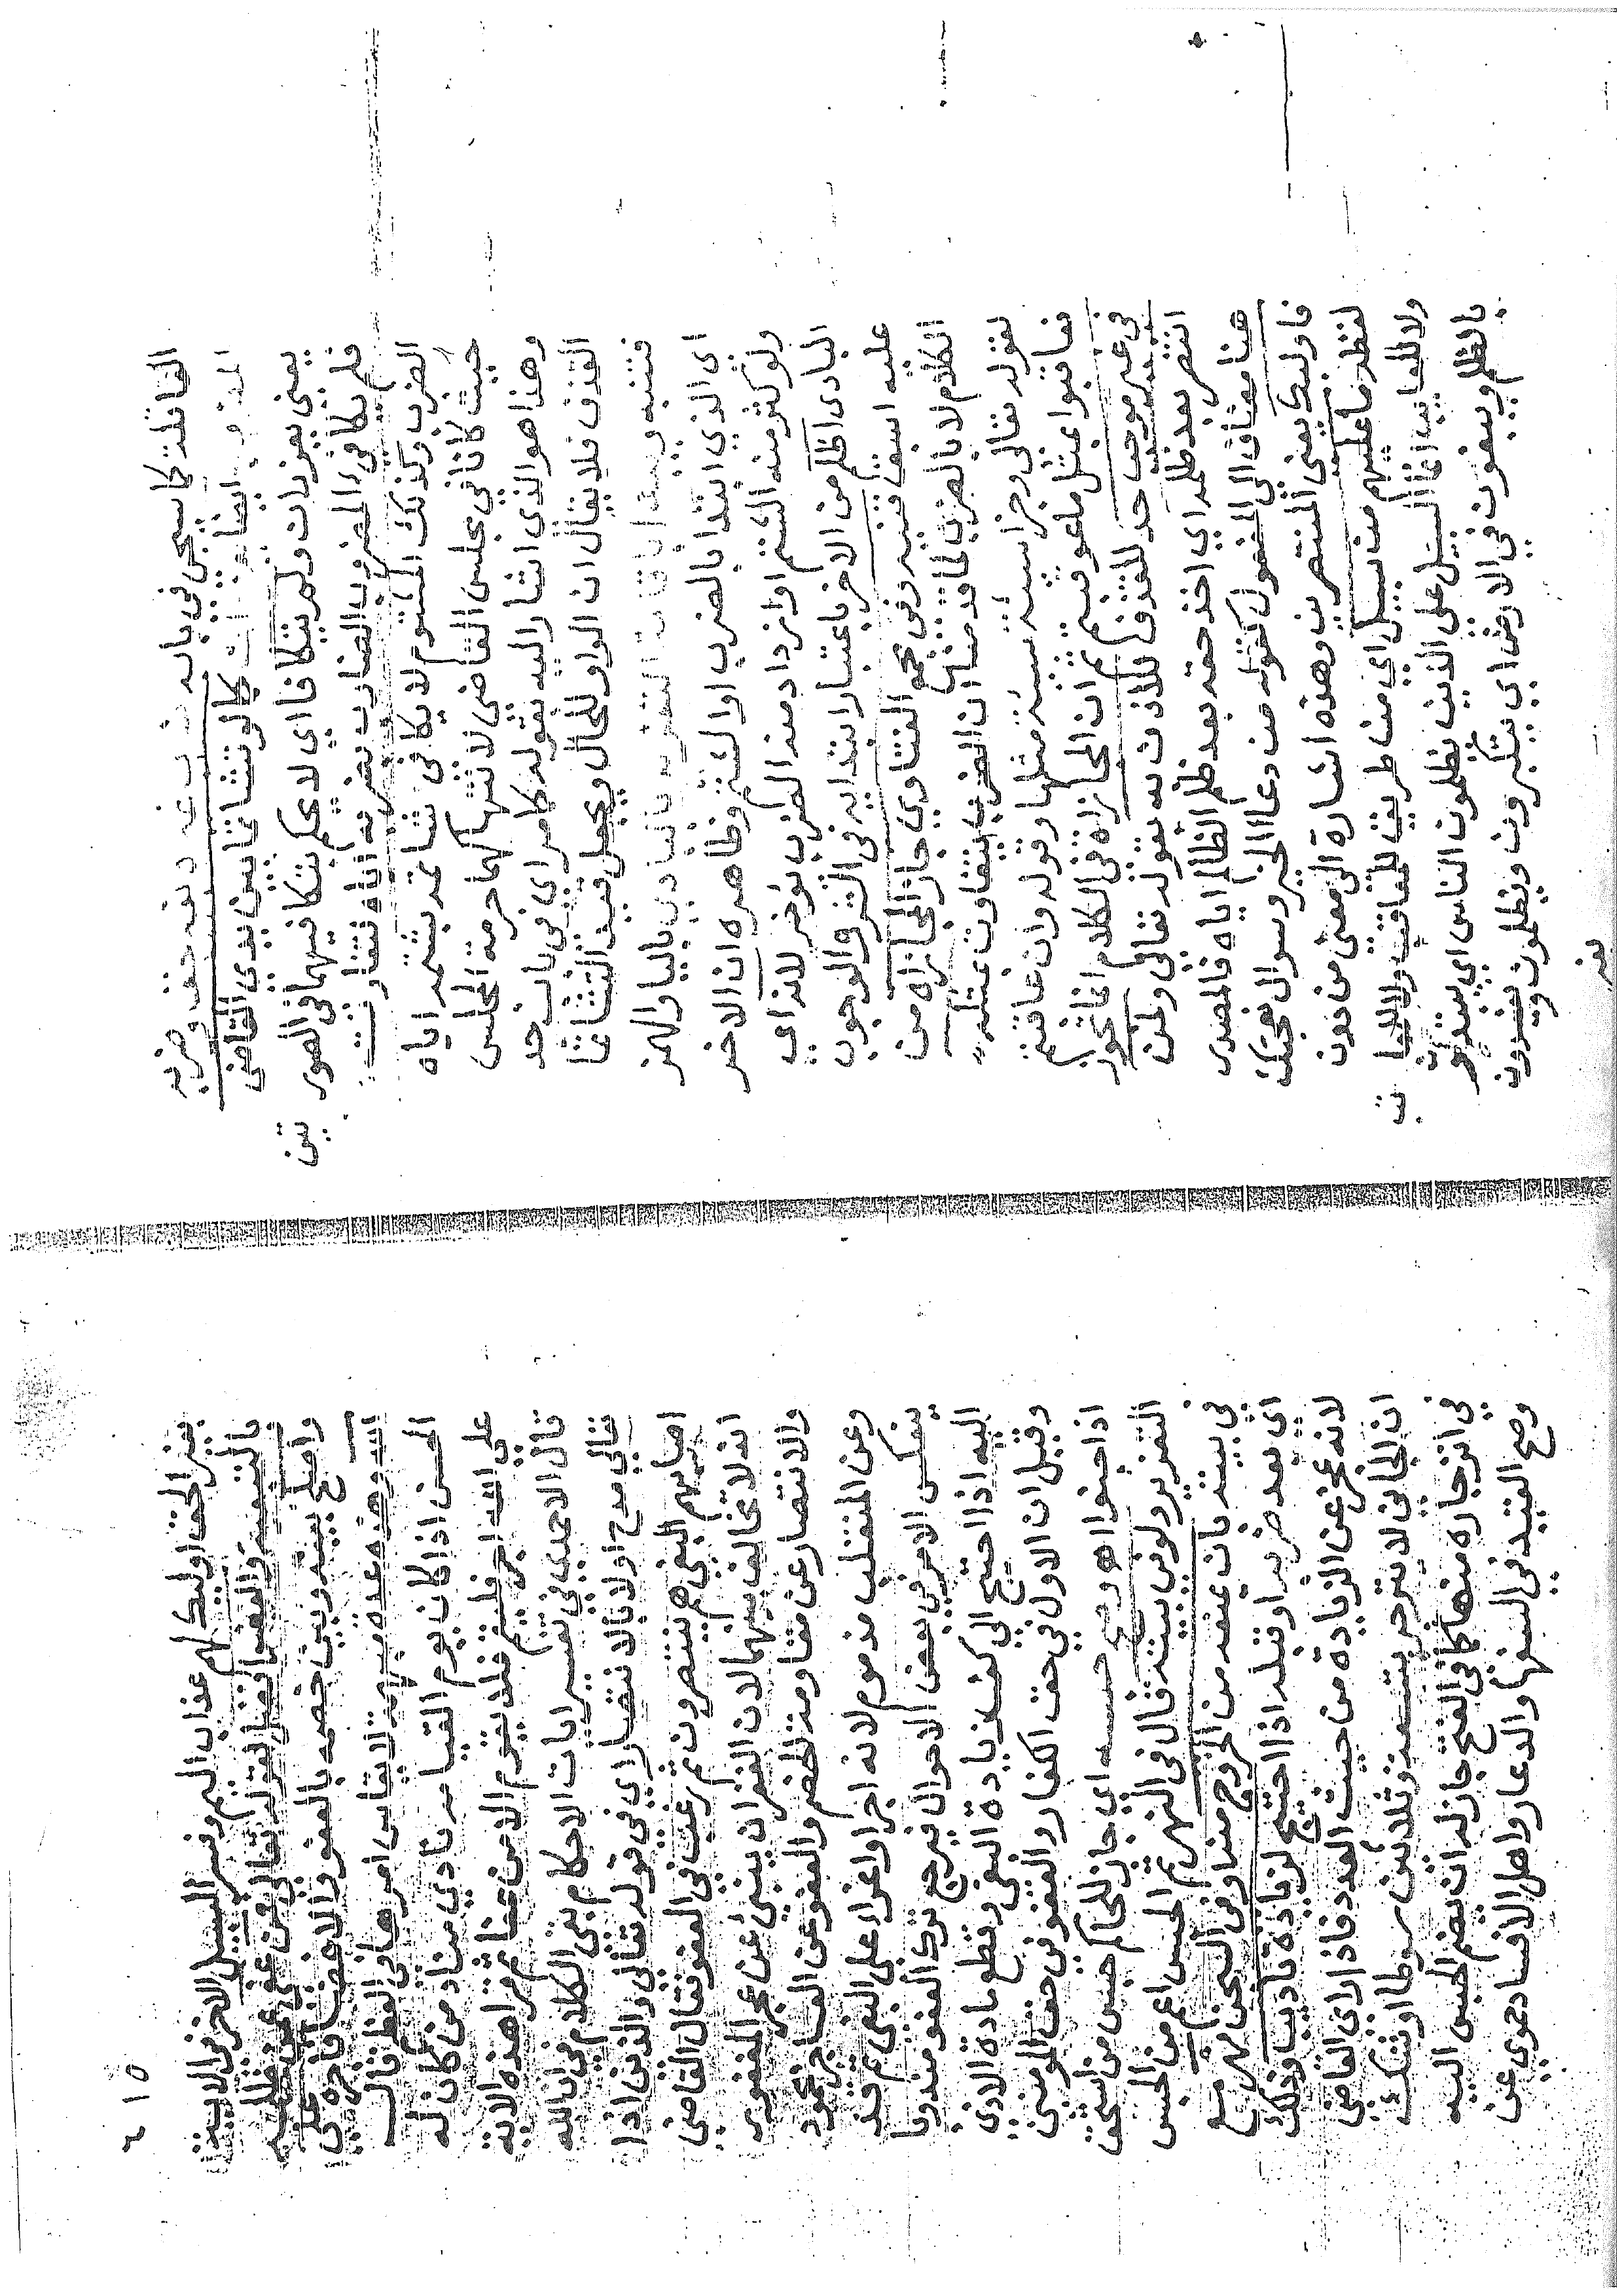 القائلة كما سيجي في بابه
يعني يعزران ولم يتكافا اي لا يحكم بتكافيهما في الصور تين
فلم يكافئ المضروب الضارب بضربه اياه لتفاوت
الضرب وكذلك المشتوم لا يكافي شاتمه بشتمه اياه
حيث كانا في مجلس القاضي لانتهاكهما حرمة المجلس
وهذا هو الذي اشار اليه بقوله كما مر اي في باب حد
القذف فلا يقال ان الواو للحال ويجعل قيد التشاتما
فتنبه ويبدا باقامة التعزير بالبادي بالياء والهمز
اي الذي ابتدا بالضرب او الشتم وظاهره ان الاخر
ولو كثر منه الشتم او ازداد منه الضرب يؤخر لان اي
البادي اظلم من الاخر باعتبار ابتدايه في الشر والوجوب
عليه اسبق قنيه وفي مجمع الفتاوى جاز المجازاه من
الكلام لا بالضرب لما قدمنا ان الضرب يتفاوت بمثله
لقوله تعالى وجزا سيئة سيئة مثلها وقوله وان عاقبتم
فعاقبوا بمثل ما عوقبتم ثم ان المجازاة في الكلام انما تجوز
في غير موجب حد للقذف للاذن به بقوله تعالى ولمن
انتصر بعد ظلمه اي اخذ حقه بعد ظلم الظالم اياه فالمصدر
هنا مضاف الى المفعول كقوله من دعا الخير وسوال نعجتك
فاوليك يعني المنتصرين وهذه اشارة الى معنى من دون
لفظه ما عليهم من سبيل اي من طريق للمعاقب ولا للعا ت
ولا للعايب انما السبيل على الذين يظلمون الناس اي يبتدؤ
بالظلم ويبغون في الارض اي يتكبرون ويظلمون ويفسدون
بغير
٢١٥
بغير الحق اوليك لهم عذاب اليم وفسر السبيل الاخر في الاية
بالتبعة والعفو افضل لقوله تعالى فمن عفى عمن ظلمه
واصلح بينه وبين خصمه بالعفو والاغضا فاجره على
الله وهذه عدة مبهمة لا يقاس امرها في العظم قالـ
الحسن اذا كان يوم القيامه نادي مناد من كان له
على الله اجر فليقم فلا يقوم الا من عفا ثم قرا هذه الاية
قال الاحمدي في تفسير ايات الاحكام بقي الكلام في ان الله
تعالى مدح اولا بالانتصار اي في قوله تعالى والذين اذا
اصابهم البغي هم ينتصرون ثم رغب في العفو فقال القاضي
انه لا تخالف بينهما لان الغفران ينبئ عن عجز المغفور
والانتصار عن مقاومة الخصم والعفو عن العاجز محمود
وعن المتغلب مذموم لانه اجرا واغراء على البغي ثم قد
ينعكس الامر في بعض الاحوال فيرجع ترك العفو مندوبا
اليه اذا احتيج الى كف زيادة البغي وقطع مادة الاذى
وقيل ان الاول في حق الكفار والعفو في حق المومنين
اذا جنوا اهـ وصح حبسه اي جاز للحاكم حبس من استحق
التعزير ولو في بيته قال في النهر ثم الحبس اعم من الحبس
في بيته بان يمنعه من الخروج منه او في السجن نهر مع ضربه
اي بعد ضربه او قبله اذا احتيج لزيادة تاديب وذلك
لانه عجز عن الزيادة من حيث العدد فاذا راى القاضي
ان الجاني لا ينزجر بتسعة وثلاثين سوطا او شك
في انزجاره منها كما في الفتح جاز له ان يضم الحبس اليه
وصح القيد في السفها والدعار واهل الافساد حموي عن